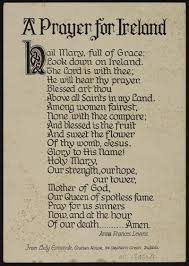 A Prayer for Ireland
Hail Mary, full of Grace;
Look down on Ireland.
The Lord is with thee;
He will hear thy prayer.
Blessed art thou
Above all Saints in my Land.
Among women fairest,
None with thee compare;
And blessed is the fruit
And sweet the flower
Of thy womb, Jesus.
Glory to His Name!
Holy Mary,
Our strength, our hope,
our tower,
Mother of God,
Our Queen of spotless fame,
Pray for us sinners
Now, and at the hour
Of our death. Amen.
Anna Frances Levins
From Lady Esmonde,